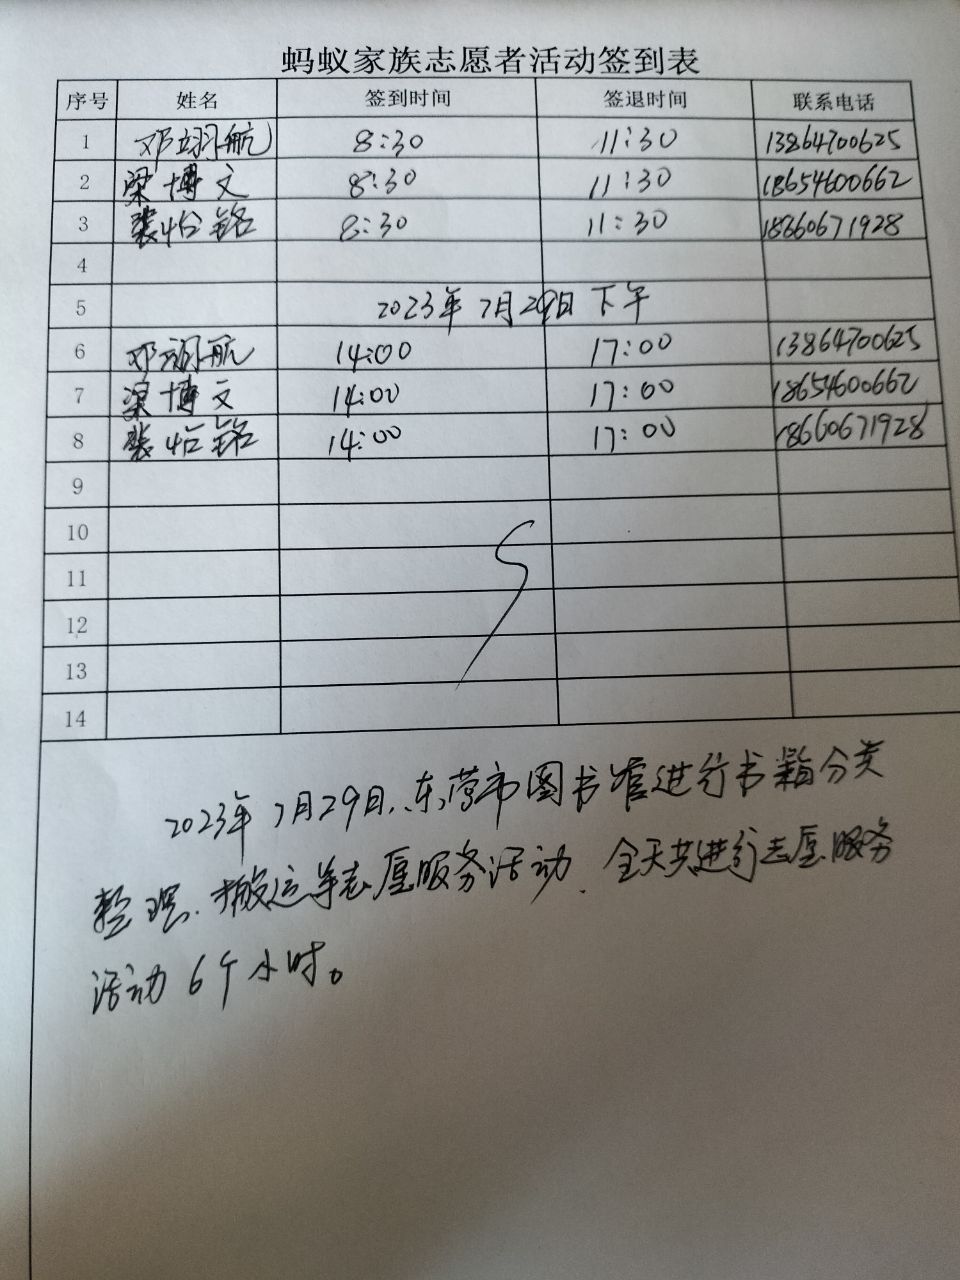 蚂蚁家族志愿者活动签到表
序号 姓名 签到时间 签退时间 联系电话
1 邓翊航 8:30 11:30 13864700625
2 梁博文 8:30 11:30 18654600662
3 裴怡铭 8:30 11:30 18660671928
4
5 2023年7月29日下午
6 邓翊航 14:00 17:00 13864700625
7 梁博文 14:00 17:00 18654600662
8 裴怡铭 14:00 17:00 18660671928
9
10
11
12
13
14
2023年7月29日,东营市图书馆进行书籍分类
整理、搬运等志愿服务活动、全天共进行志愿服务
活动6个小时。